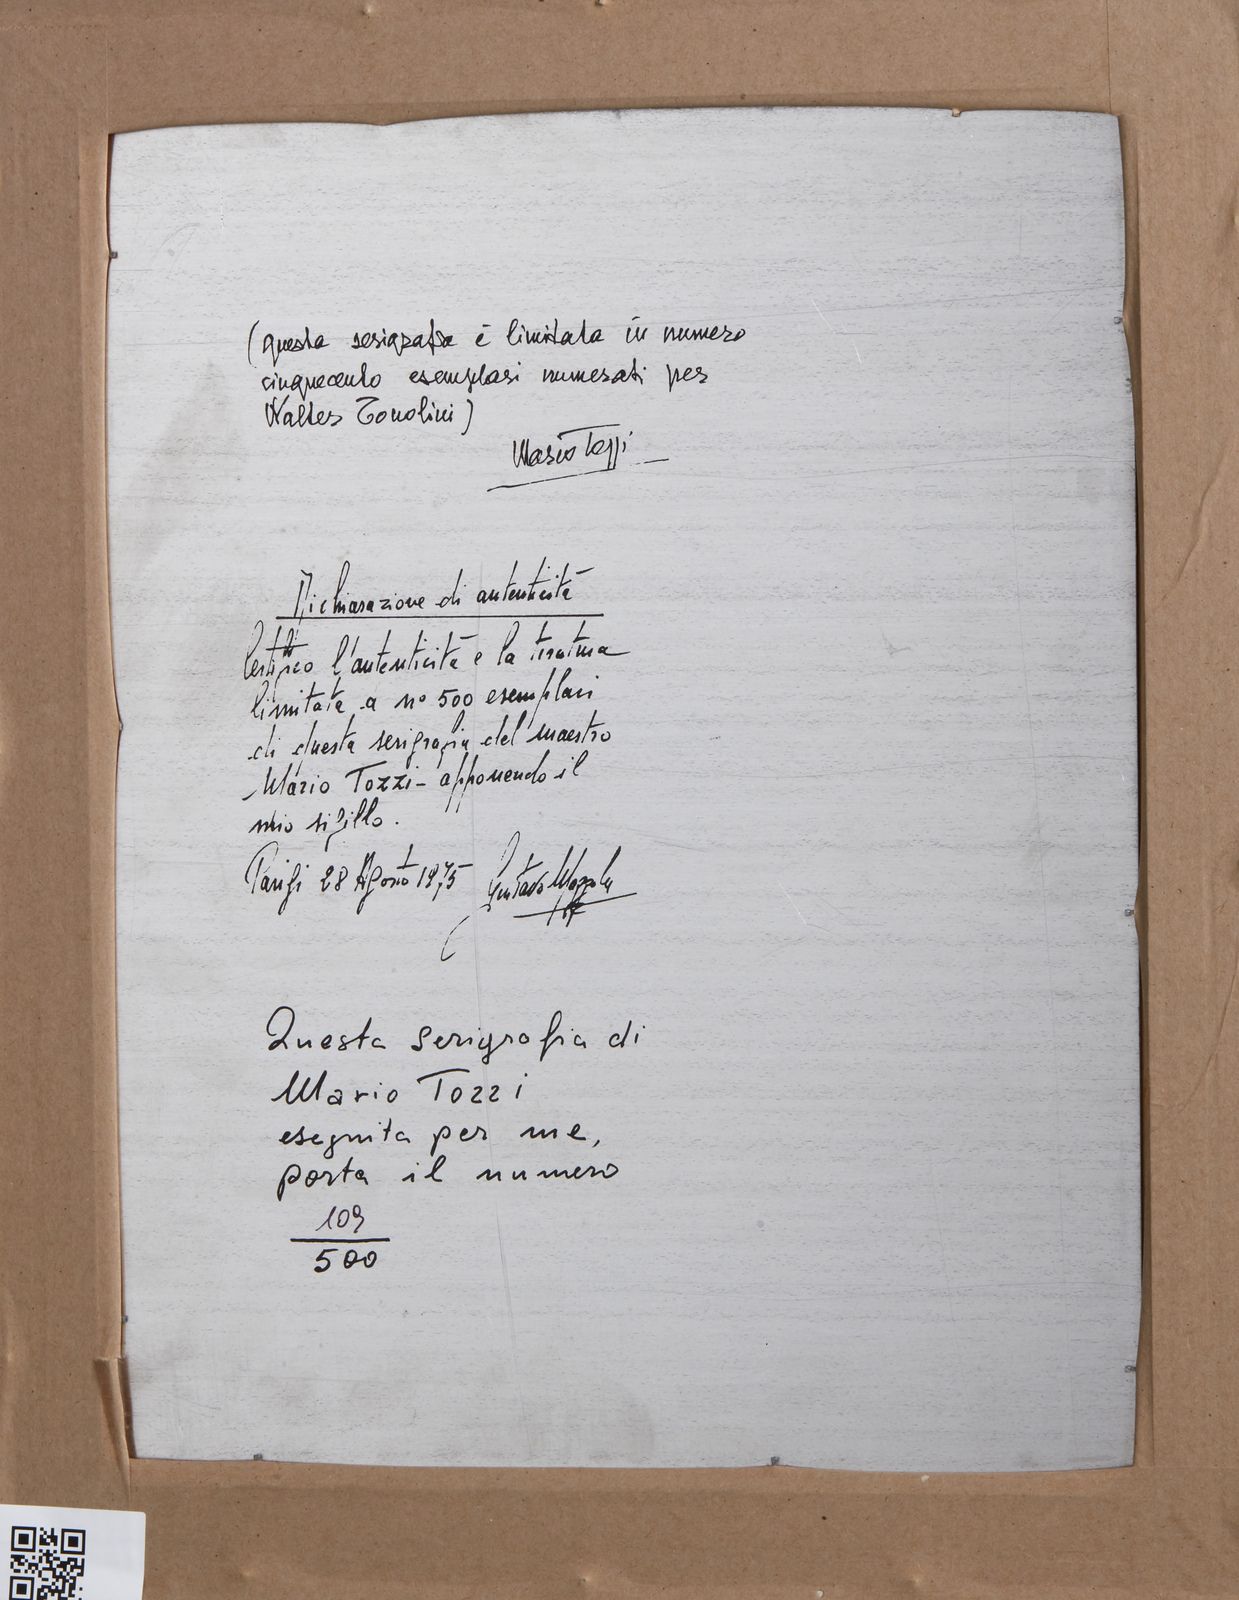 (questa serigrafia è limitata in numero
cinquecento esemplari numerati per
Walter Tonolini)
Mario Tozzi
Dichiarazione di autenticità
Certifico l'autenticità e la tiratura
limitata a n° 500 esemplari
di questa serigrafia del maestro
Mario Tozzi - apponendo il
mio sigillo.
Parigi 28 Agosto 1975
Questa serigrafia di
Mario Tozzi
eseguita per me,
porta il numero
109
500